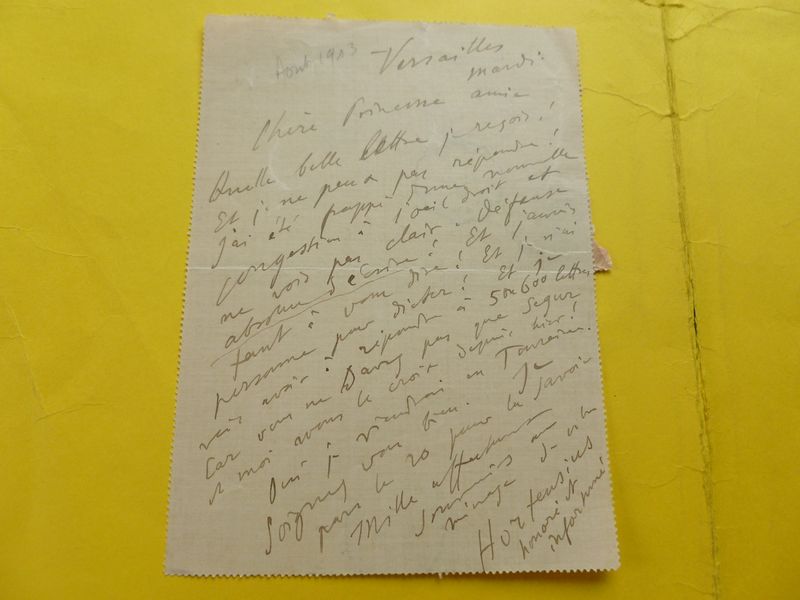 Aout 1903
Versailles
mardi
Chère Princesse amie
Quelle belle lettre je reçois!
Et je ne peux pas répondre!
J'ai été frappé d'une nouvelle
congestion à l'oeil droit et
ne vois pas clair. Défense
absolue d'écrire! Et j'aurais
tant à vous dire! Et je n'ai
personne pour dicter! Et je
vais avoir à répondre à 500 600 lettres
Car vous ne savez pas que Segur
et moi avons la croix depuis hier!
Oui je viendrai en Touraine.
Soignez vous bien. Je
pars le 20 pour la Savoie
Mille affectueux
souvenirs au
ménage
Hortensius
honoré et
infortuné